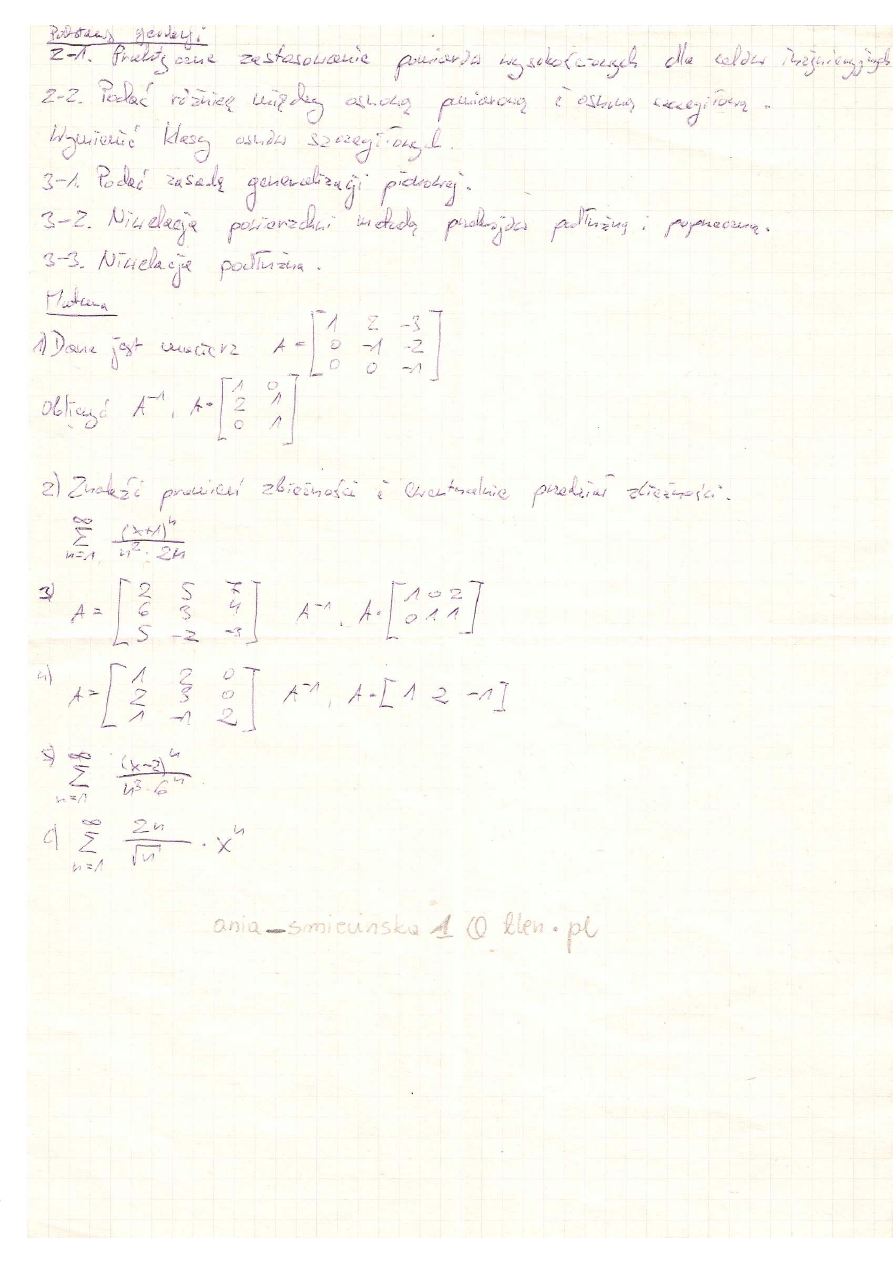 Podstawy geodezji
2-1. Praktyczne zastosowanie pomiarów wysokościowych dla celów inżynieryjnych
2-2. Podać różnicę między osnową pomiarową i osnową szczegółową.
Wymienić klasy osnów szczegółowych.
3-1. Podać zasadę generalizacji pionowej.
3-2. Niwelacja powierzchni metodą przekrojów podłużną i poprzeczną.
3-3. Niwelacja podłużna.
Matma
1) Dana jest macierz A = [1 2 -3
0 -1 -2
0 0 -1]
Obliczyć A^-1, A·[1 0
2 1
0 1]
2) Znaleźć promień zbieżności i ewentualnie przedział zbieżności.
∞ Σ n=1 (x+1)^n / n^2 · 2n
3) A = [2 5 7
6 3 4
5 -2 -3] A^-1, A·[1 0 2
0 1 1]
4) A = [1 2 0
2 3 0
1 -1 2] A^-1, A·[1 2 -1]
5) ∞ Σ n=1 (x-2)^n / n^3 · 6^n
6) ∞ Σ n=1 2n / √n · x^n
ania_smiecinska 1 @ tlen.pl